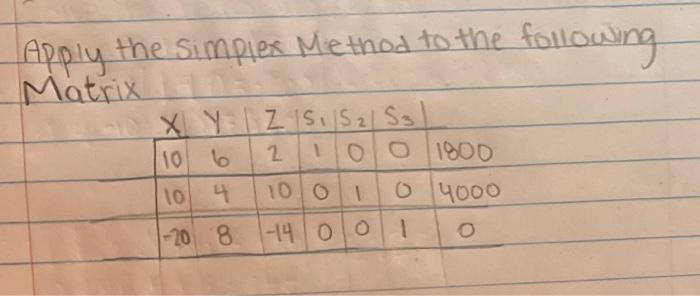 Apply the Simplex Method to the following
Matrix
X Y Z S1 S2 S3
10 6 2 1 0 0 1800
10 4 10 0 1 0 4000
-20 8 -14 0 0 1 0